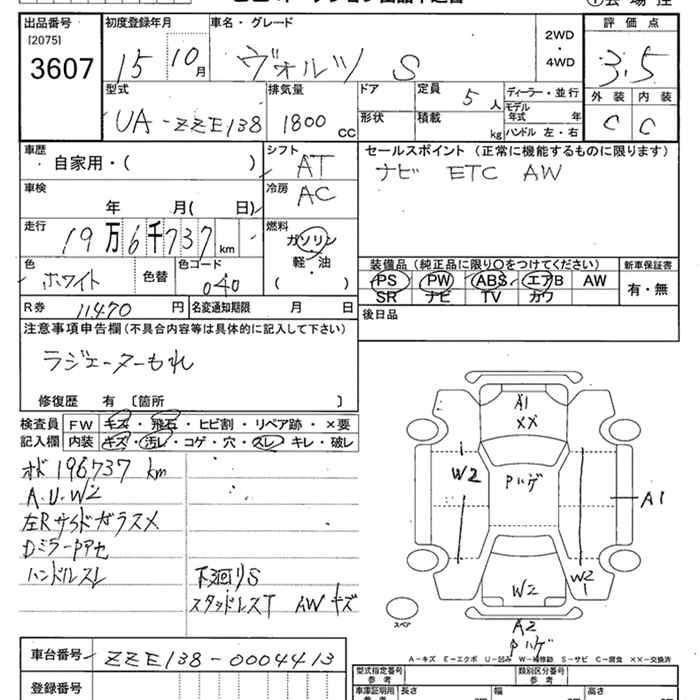 出品番号 初度登録年月 車名・グレード 評価点
[2075]
3607
15 10月 ヴォルツ S 2WD・4WD 3.5
型式 排気量 ドア 定員 5人 ディーラー・並行 外装 内装
UA-ZZE138 1800cc 形状 積載 kg モデル年式 年 C C
ハンドル 左・右
車歴 自家用・( ) シフト AT セールスポイント(正常に機能するものに限ります)
ナビ ETC AW
車検 年 月( 日) 冷房 AC
走行 19万6千737km 燃料 ガソリン
軽・油
( )
色 ホワイト 色替 色コード 040 装備品(純正品に限り○をつけてください) 新車保証書
PS PW ABS エアB AW 有・無
SR ナビ TV カワ
R券 11470円 名変通知期限 月 日 後日品
注意事項申告欄(不具合内容等は具体的に記入して下さい)
ラジエーターもれ
修復歴 有 〔箇所 〕
検査員 FW キズ・飛石・ヒビ割・リペア跡・×要
記入欄 内装 キズ・汚レ・コゲ・穴・スレ・キレ・破レ
オド 196737 km
A.U.W2
左Rサイドガラスメ
Dミラーpアセ
ハンドルスレ 下廻りS
スタッドレスT AWキズ
A1
XX
W2
Pハゲ
A1
W2
W2
A2
Pハゲ
スペア
A-キズ E-エクボ U-凹み W-補修跡 S-サビ C-腐食 XX-交換済
車台番号 ZZE138-0004413
登録番号
型式指定番号 類別区分番号
参考 参考
車庫証明用 長さ 幅 高さ